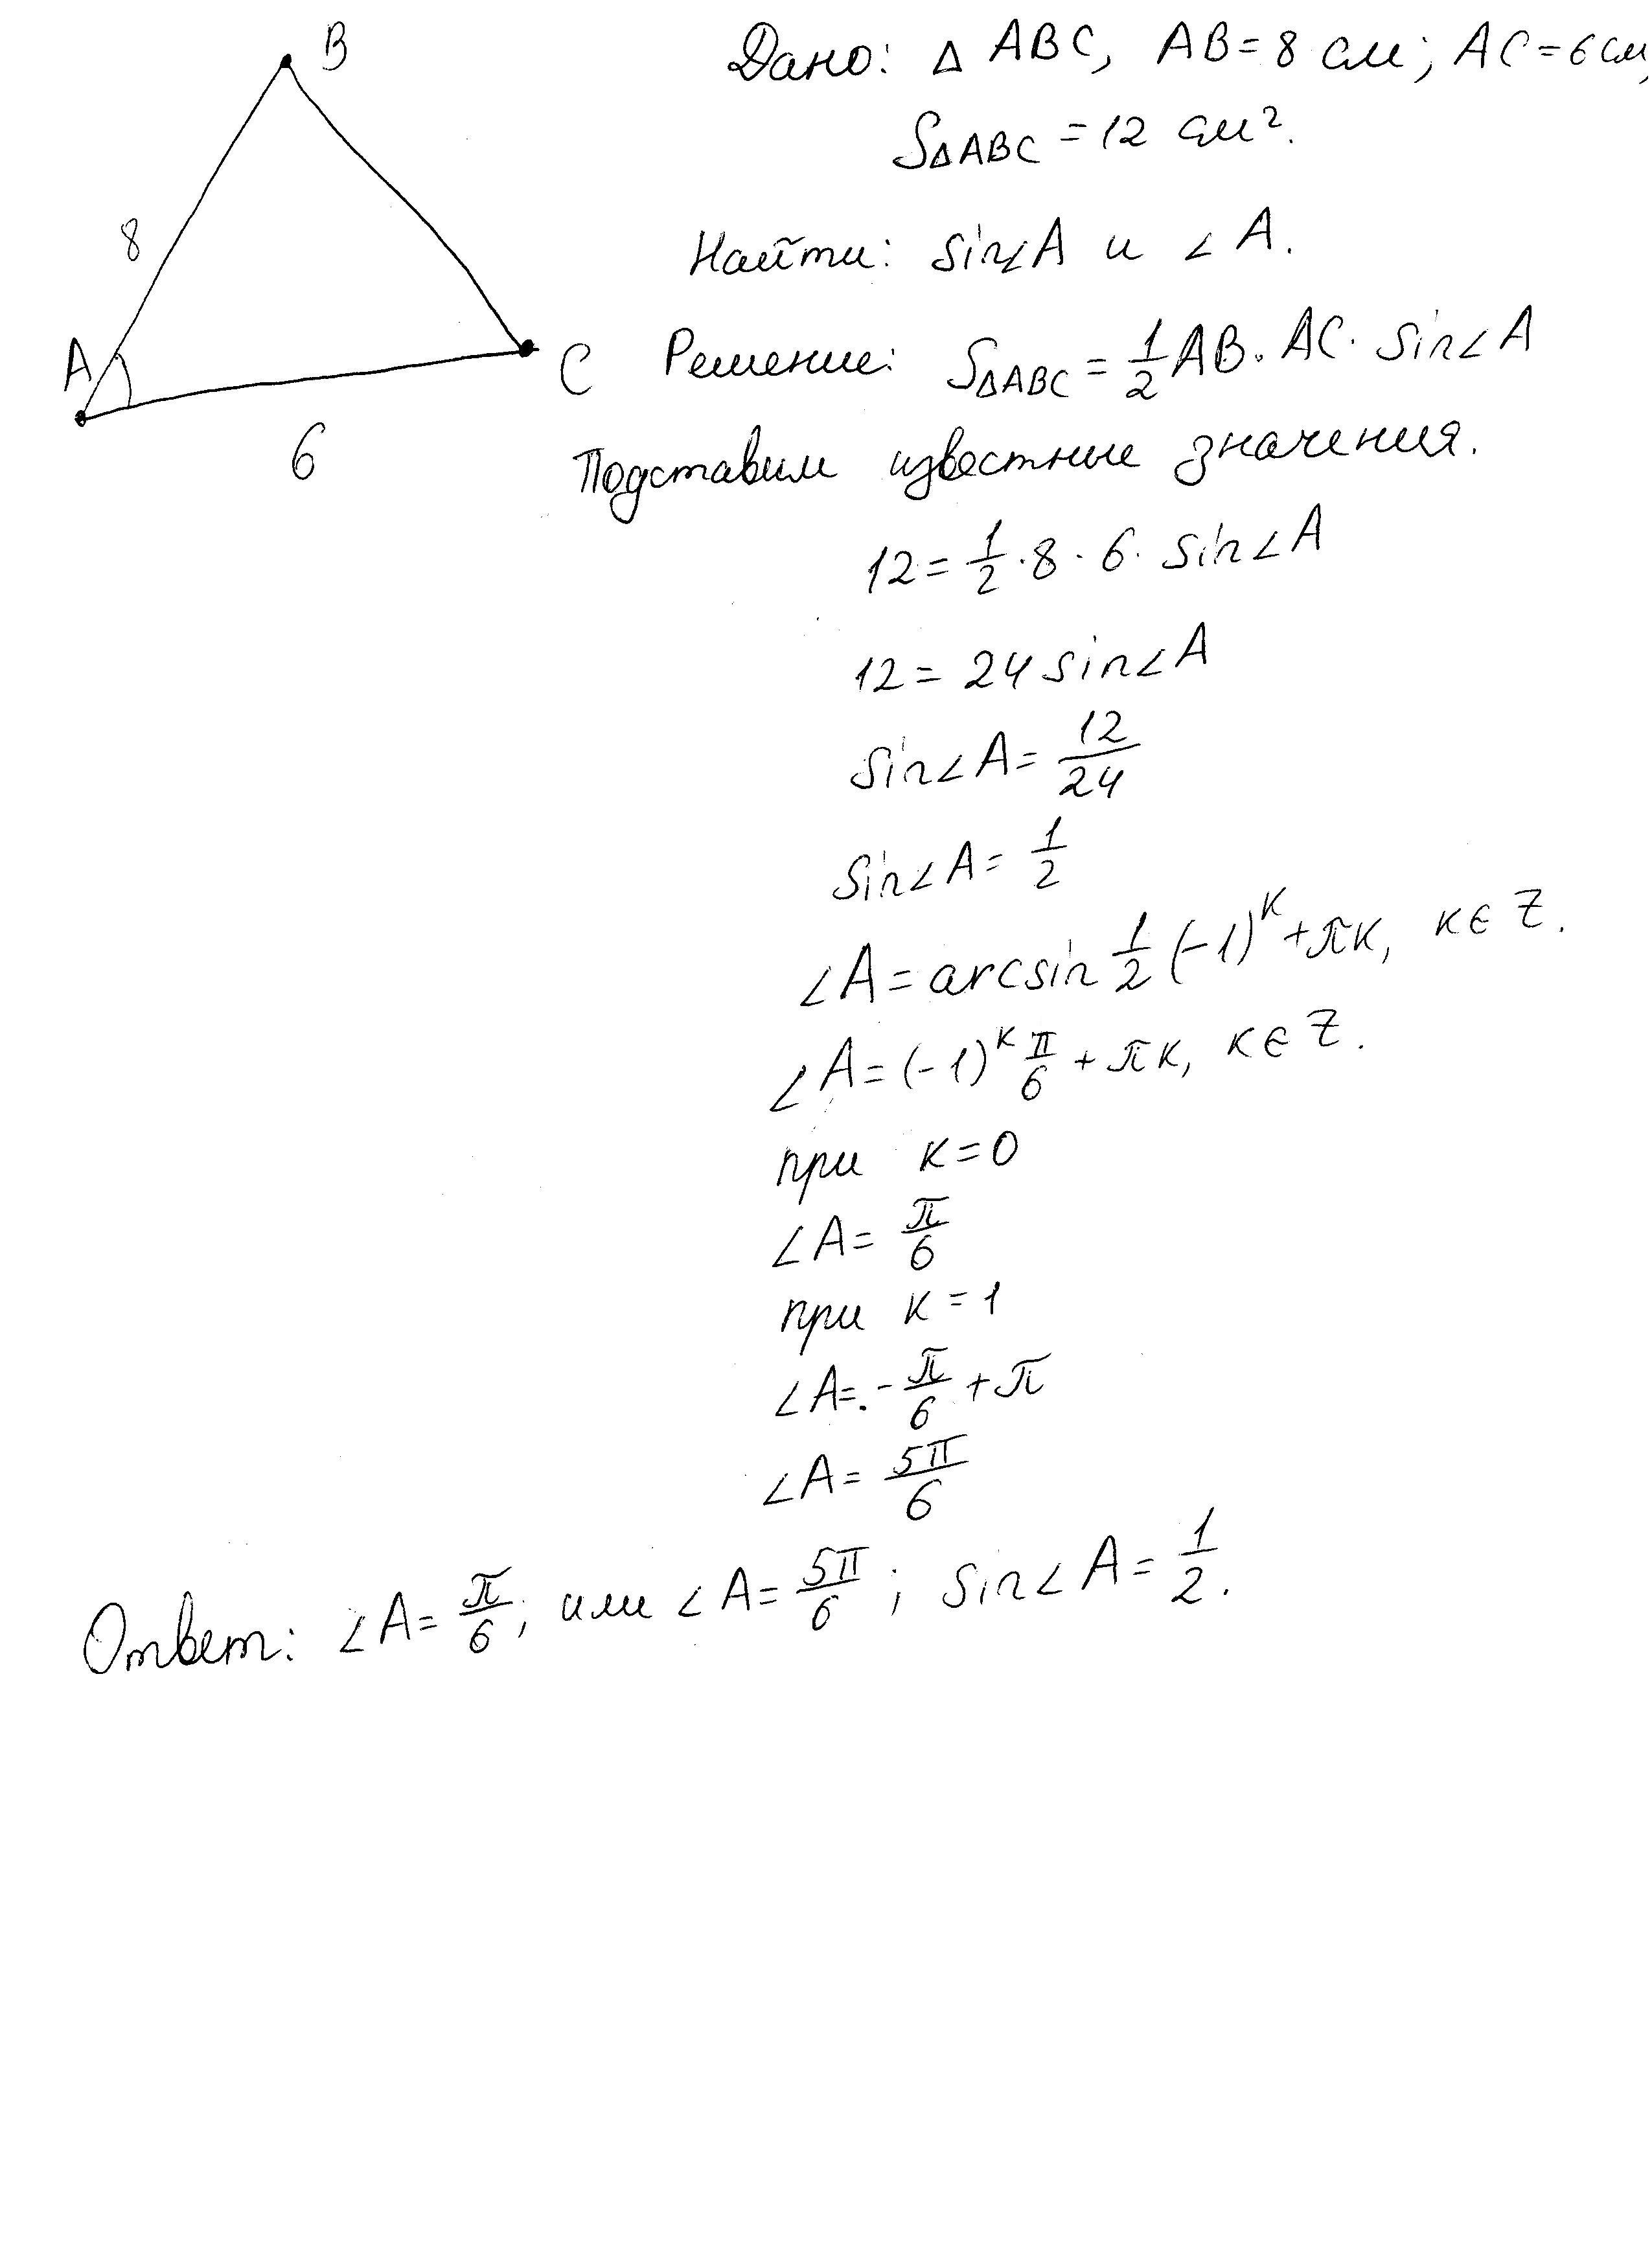 B
8
A
C
6
Дано: △ ABC, AB=8 см; AC=6см,
S△ABC = 12 см².
Найти: sin∠A и ∠A.
Решение: S△ABC = 1/2 AB · AC · sin∠A
Подставим известные значения.
12 = 1/2 · 8 · 6 · sin∠A
12 = 24 sin∠A
sin∠A = 12/24
sin∠A = 1/2
∠A = arcsin 1/2 (-1)^к + πк, к∈Z.
∠A = (-1)^к π/6 + πк, к∈Z.
при к=0
∠A = π/6
при к=1
∠A = -π/6 + π
∠A = 5π/6
Ответ: ∠A = π/6, или ∠A = 5π/6; sin∠A = 1/2.